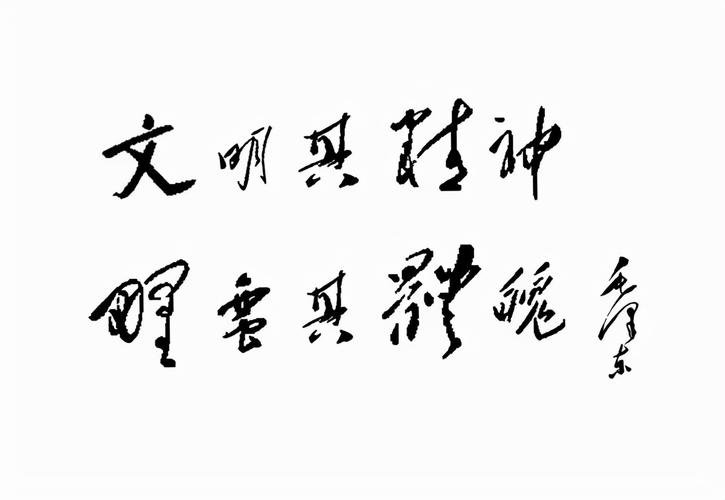 文明其精神
野蛮其體魄
毛泽东